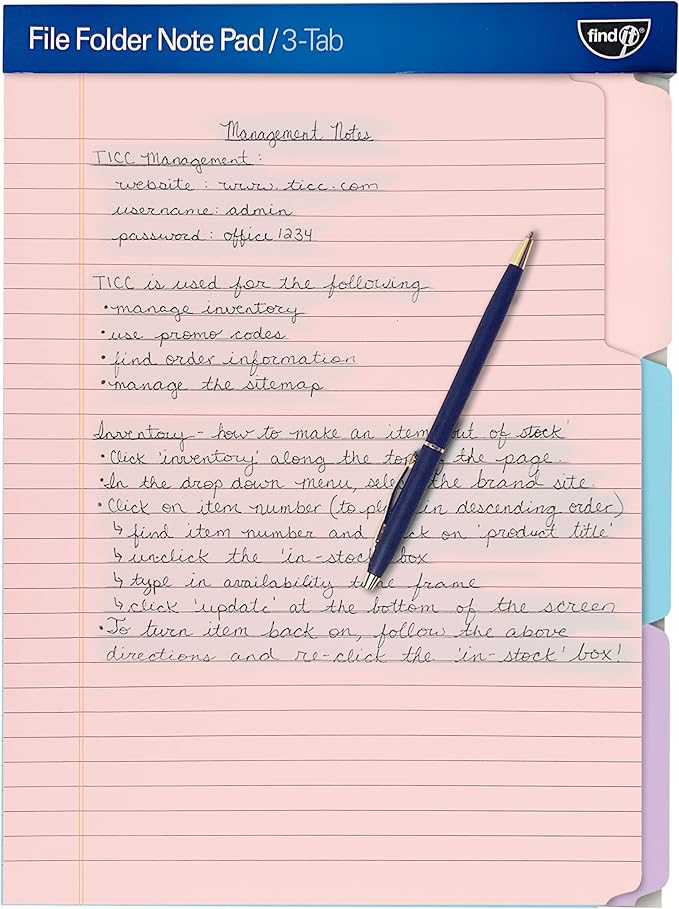 File Folder Note Pad / 3-Tab
find it®
Management Notes
TICC Management:
website: www.ticc.com
username: admin
password: office1234
TICC is used for the following
• manage inventory
• use promo codes
• find order information
• manage the sitemap
Inventory - how to make an item out of stock
• Click 'inventory' along the top of the page.
• In the drop down menu, select the brand site.
• Click on item number (to in descending order)
↳ find item number and click on 'product title'
↳ unclick the 'in-stock' box
↳ type in availability time frame
↳ click 'update' at the bottom of the screen
• To turn item back on, follow the above
directions and re-click the 'in-stock' box!